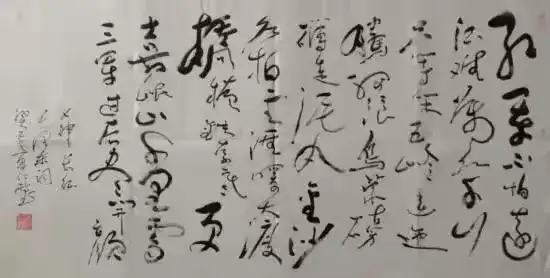 红军不怕远
征难萬水千山
只等闲五岭逶迤
腾细浪乌蒙磅
礴走泥丸金沙
水拍云崖暖大渡
桥横铁索寒更
喜岷山千里雪
三军过后尽开颜
七律 长征
毛泽东词